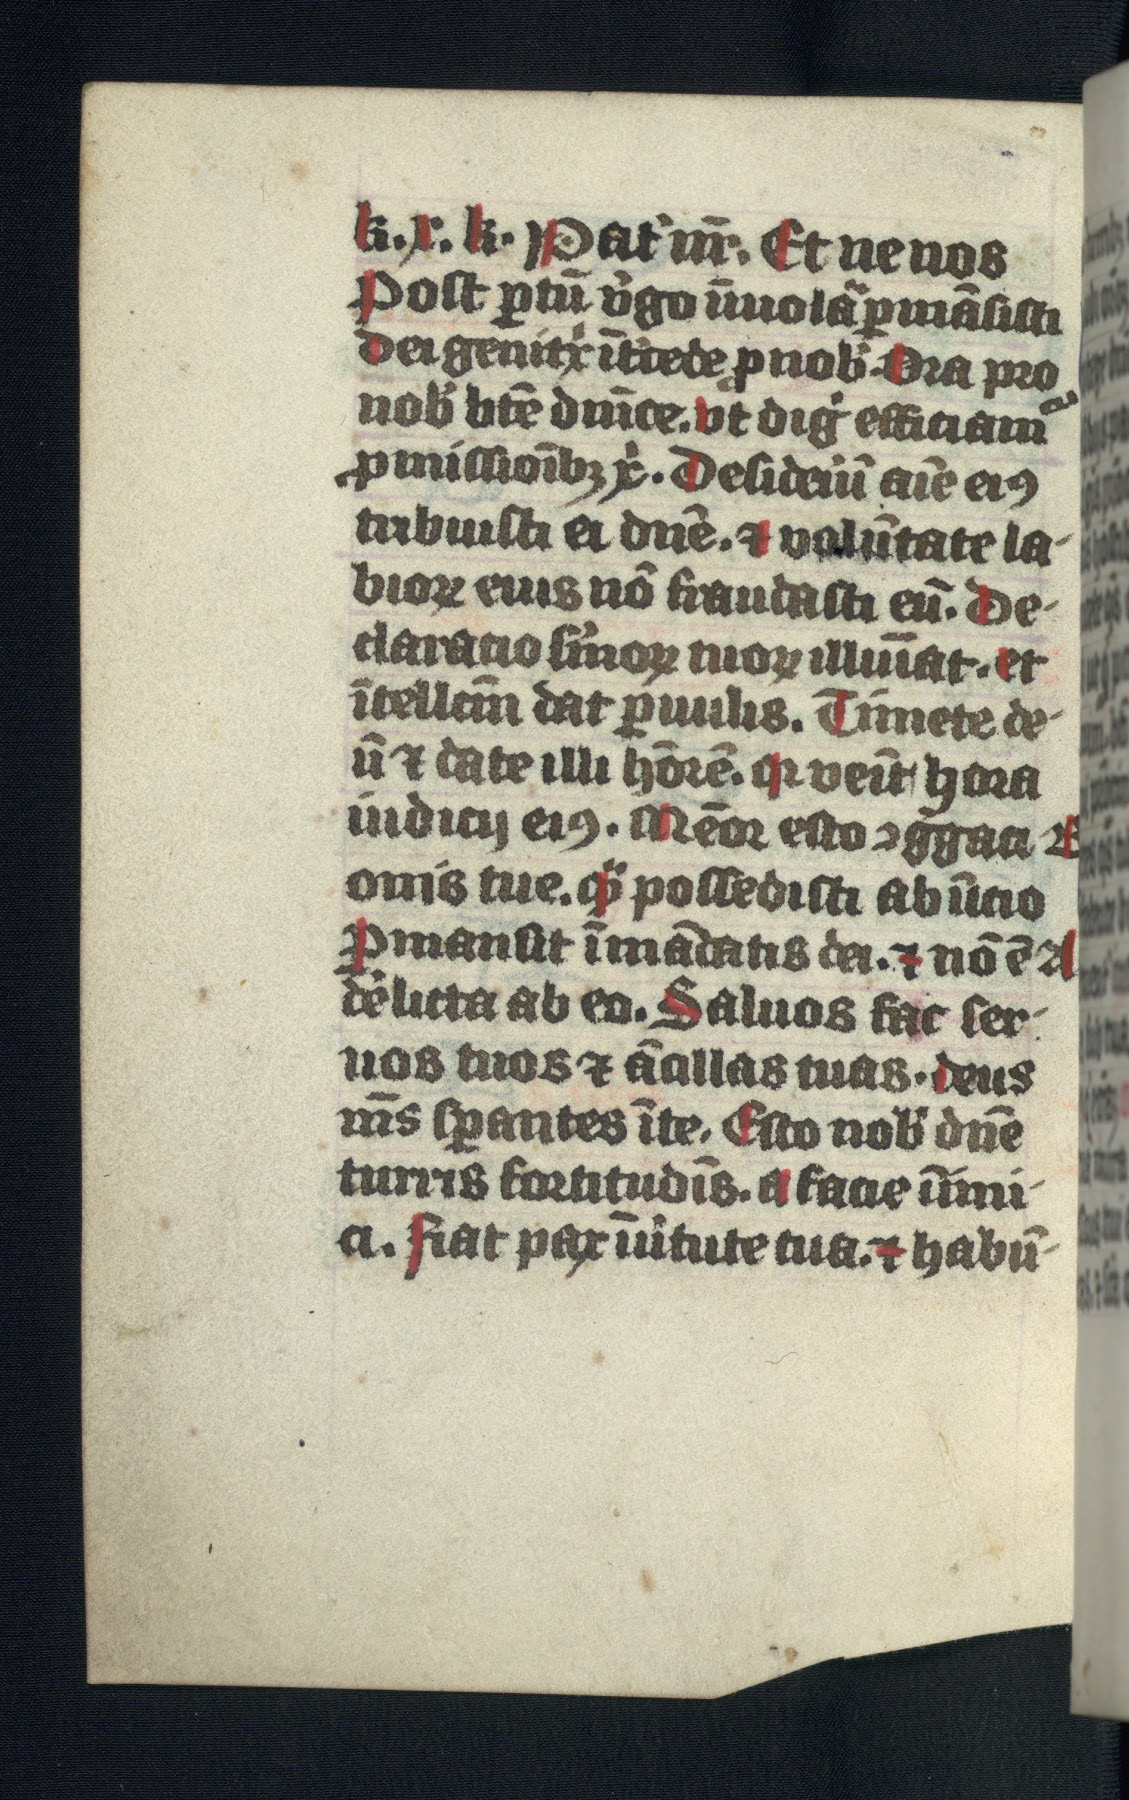 k̄. x̄. k̄. Pat͛ nr̄. Et ne nos
Post ꝑtū v͛go īuiolata ꝑmāsisti
dei genit͛x īt͛cede ꝓ nob͛. Ora pro
nob͛ btē dn̄ice. vt dig͛ efficiam᷑
ꝓmissioībꝫ x͛. Desideriū aīe eiꝰ
tribuisti ei dn̄e. ⁊ volūtate la-
bioꝝ eius nō fraudasti eū. De-
claracio s͛monꝝ tuoꝝ illumīat. et
ītellc̄m dat ꝑuulis. Timete de-
ū ⁊ date illi hōrē. qꝛ veīt hora
iudicij eiꝰ. Mēor esto ꝯg̅gaci
onis tue. qͣ possedisti ab īicio
Ꝑmansit ī mādatis dei. ⁊ nō ē
dēlicta ab eo. Saluos fac ser-
uos tuos ⁊ ācillas tuas. deus
ms̄ sꝑantes ī te. Esto nob͛ dn̄e
turris fortitudīs. A facie īimi-
ci. Fiat pax ī v͛tute tua. ⁊ habū-